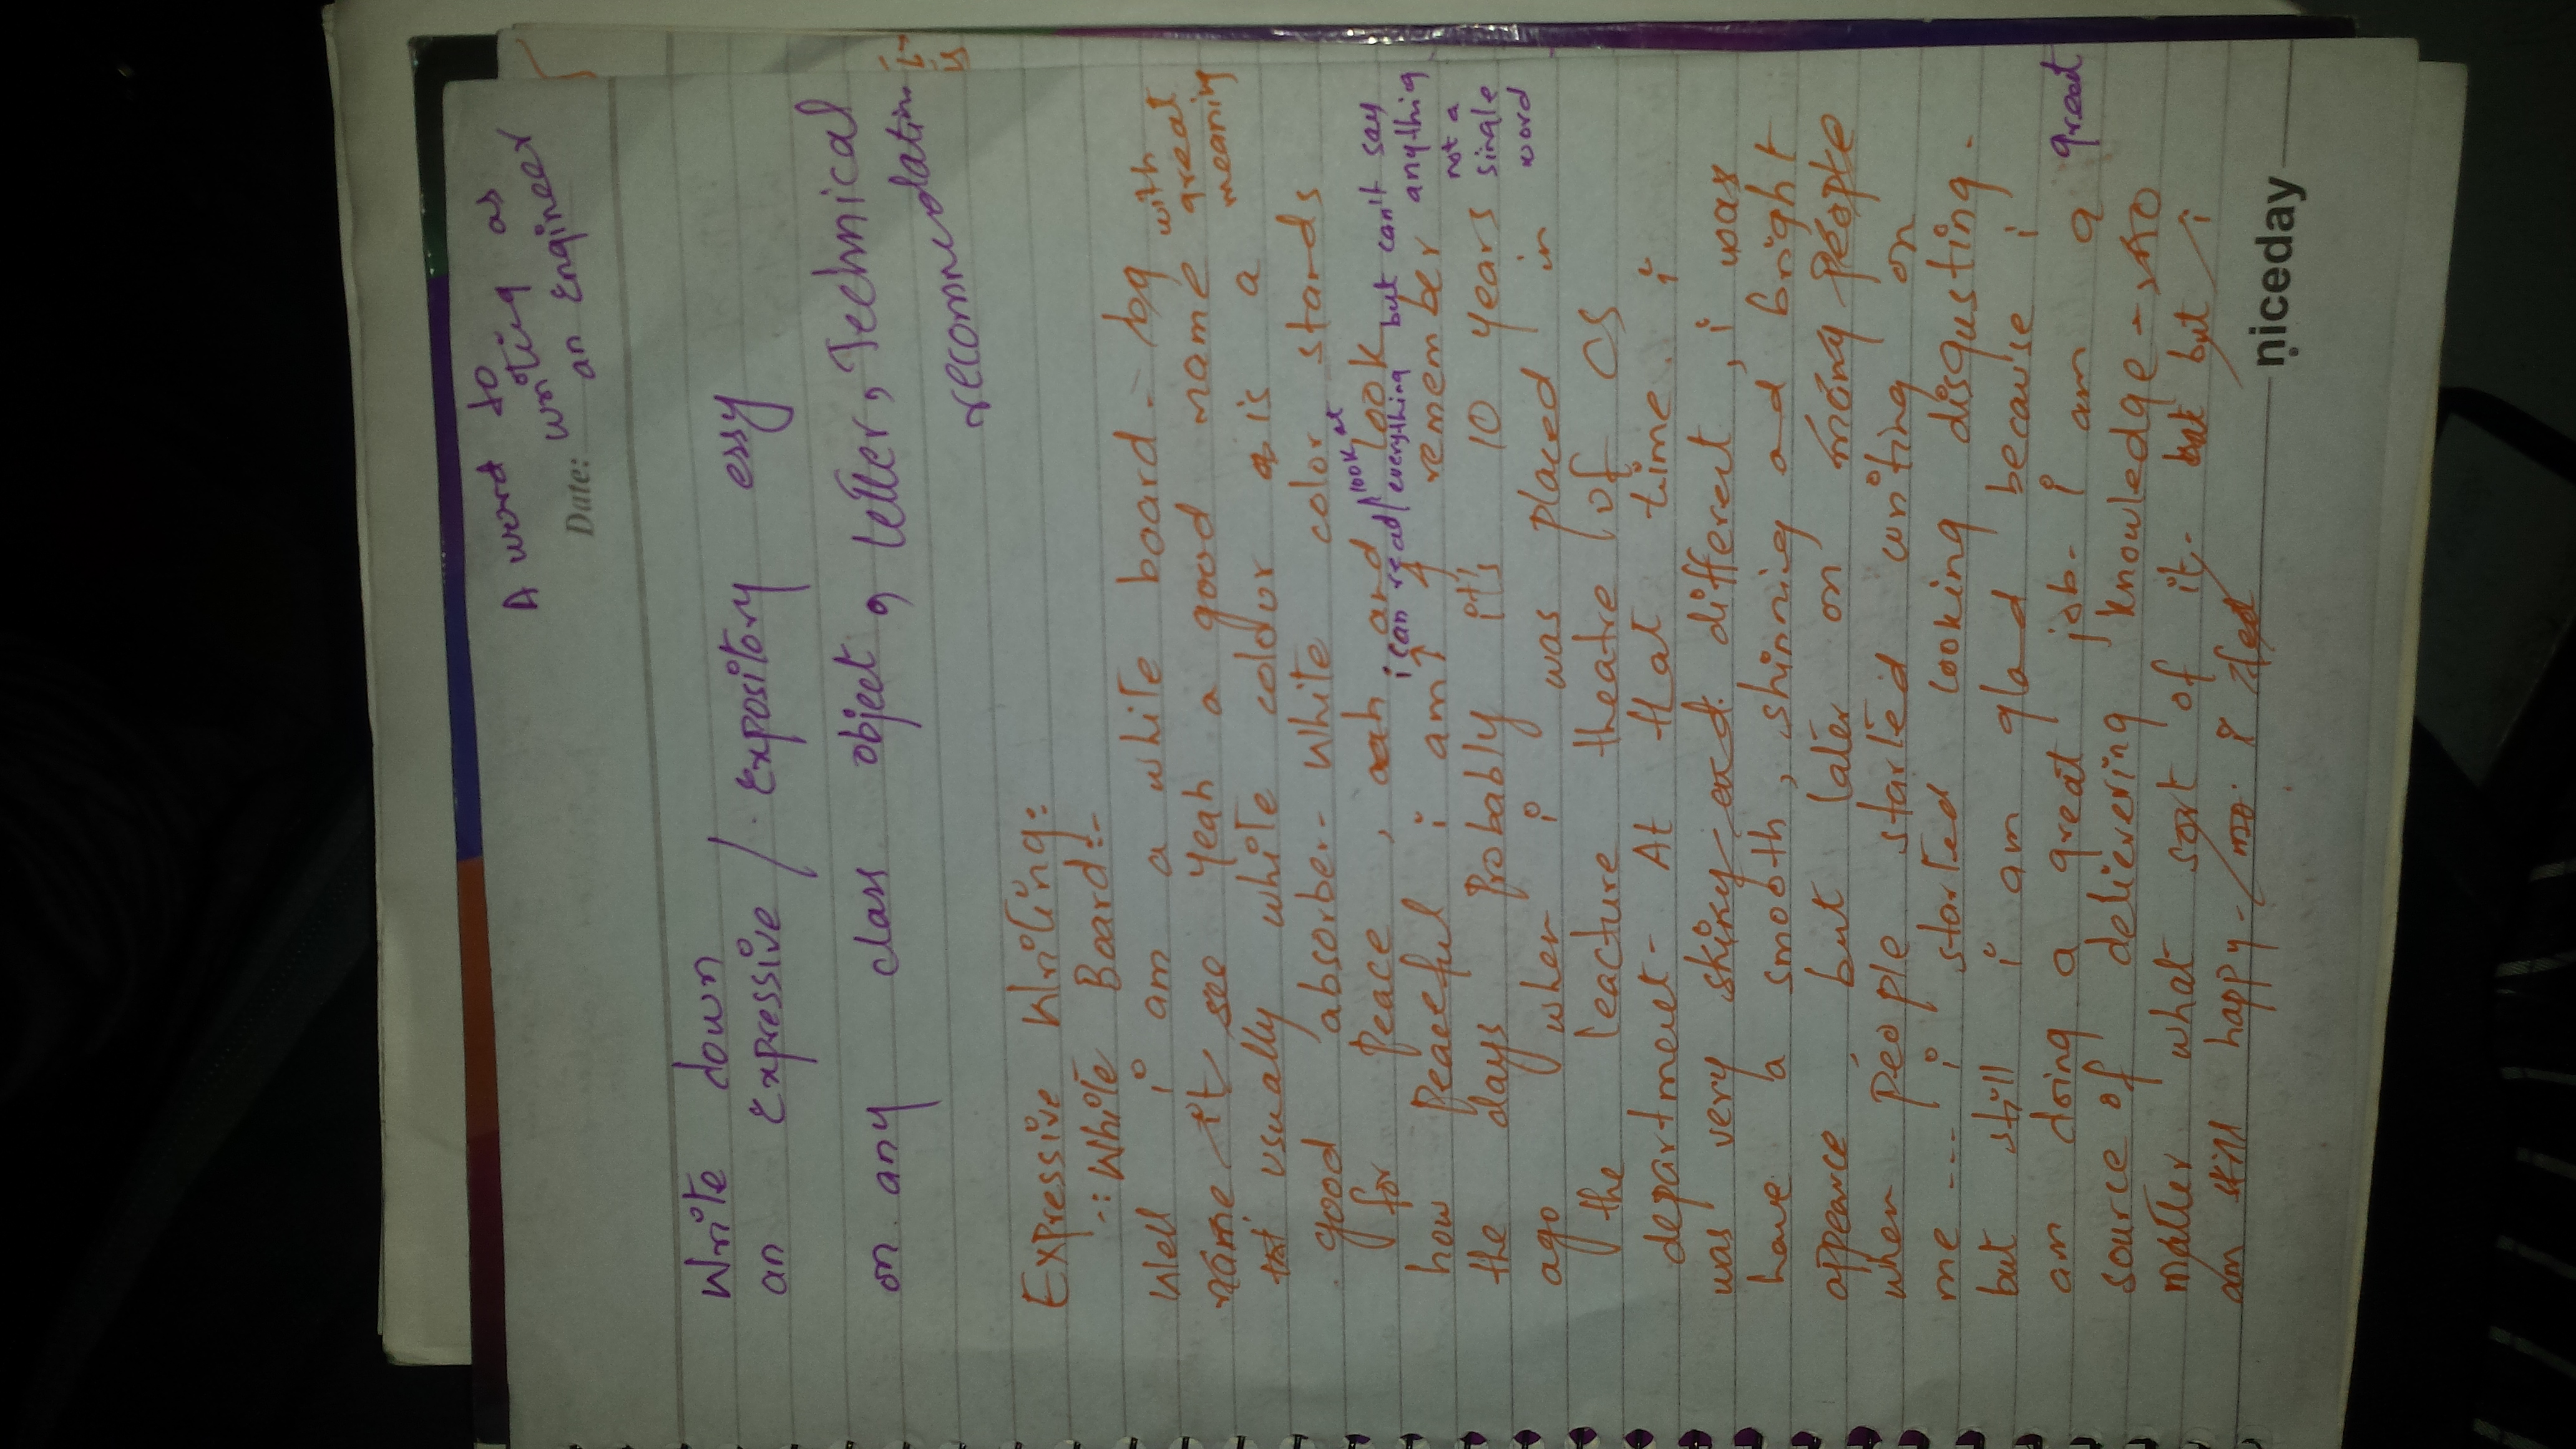 A word to
writing as
Date:
an Engineer
Write down
an Expressive / Expository essy
on any class object, letter, Technical
recommedation
Expressive Writing:
-: White Board:-
Well i am a white board - by
name it see yeah a good name with great meaning
usually white colour is a
good absorber - White color stands
for peace, aah and look
i can read / look at everything but can't say anything not a single word
how peaceful i am? I remember
the days probably it's 10 years
ago when i was placed in
the leacture theatre of CS
department - At that time i
was very skiny and different, i was
have a smooth, shinning and bright
appearnce, but later on many people
when people started writing on
me --- i started looking disgusting.
but still i am glad because i
am doing a great job - i am a great
source of delievering knowledge - no
matter what sort of it. but i
am still happy - i
niceday